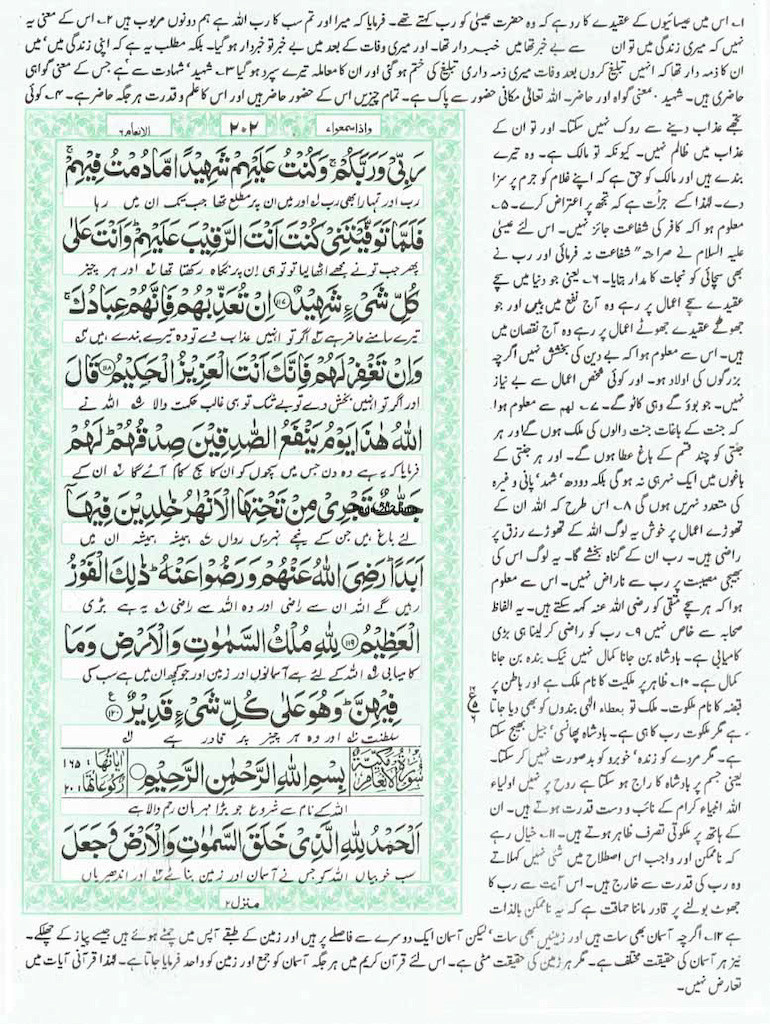 ۱؎ اس میں عیسائیوں کے عقیدے کا رد ہے کہ وہ حضرت عیسیٰ کو رب کہتے تھے۔ فرمایا کہ میرا اور تم سب کا رب اللہ ہے ہم دونوں مربوب ہیں ۲؎ اس کے معنی یہ
نہیں کہ میری زندگی میں تو ان سے بے خبر تھا میں خبردار تھا۔ اور میری وفات کے بعد میں بے خبر تو خبردار ہو گیا۔ بلکہ مطلب یہ ہے کہ اپنی زندگی میں، میں
ان کا ذمہ دار تھا کہ انہیں تبلیغ کروں بعد وفات میری ذمہ داری تبلیغ کی ختم ہو گئی اور ان کا معاملہ تیرے سپرد ہو گیا ۳؎ شہید، شہادت سے ہے جس کے معنی گواہی
حاضری ہیں۔ شہید بمعنی گواہ اور حاضر۔ اللہ تعالیٰ مکانی حضور سے پاک ہے۔ تمام چیزیں اس کے حضور حاضر ہیں اور اس کا علم و قدرت ہر جگہ حاضر ہے۔ ۴؎ کوئی
تجھے عذاب دینے سے روک نہیں سکتا۔ اور تو ان کے
عذاب میں ظالم نہیں۔ کیونکہ تو مالک ہے۔ وہ تیرے
بندے ہیں اور مالک کو حق ہے کہ اپنے غلام کو جرم پر سزا
دے۔ لہٰذا کسے جرأت ہے کہ تجھ پر اعتراض کرے۔ ۵؎
معلوم ہوا کہ کافر کی شفاعت جائز نہیں۔ اس لئے عیسیٰ
علیہ السلام نے صراحتہ" شفاعت نہ فرمائی اور رب نے
بھی سچائی کو نجات کا مدار بتایا۔ ۶؎ یعنی جو دنیا میں سچے
عقیدے سچے اعمال پر رہے وہ آج نفع میں ہیں اور جو
جھوٹے عقیدے جھوٹے اعمال پر رہے وہ آج نقصان میں
ہیں۔ اس سے معلوم ہوا کہ بے دین کی بخشش نہیں اگرچہ
بزرگوں کی اولاد ہو۔ اور کوئی شخص اعمال سے بے نیاز
نہیں۔ جو بوؤ گے وہی کاٹو گے۔ ۷؎ لھم سے معلوم ہوا
کہ جنت کے باغات جنت والوں کی ملک ہوں گے اور ہر
جنتی کو چند قسم کے باغ عطا ہوں گے۔ اور ہر جنتی کے
باغوں میں ایک نہر ہی نہ ہو گی بلکہ دودھ، شہد، پانی وغیرہ
کی متعدد نہریں ہوں گی ۸؎ اس طرح کہ اللہ ان کے
تھوڑے اعمال پر خوش یہ لوگ اللہ کے تھوڑے رزق پر
راضی ہیں۔ رب ان کے گناہ بخشے گا۔ یہ لوگ اس کی
بھیجی مصیبت پر رب سے ناراض نہیں۔ اس سے معلوم
ہوا کہ ہر سچے متقی کو رضی اللہ عنہ کہہ سکتے ہیں۔ یہ الفاظ
صحابہ سے خاص نہیں ۹؎ رب کو راضی کر لینا ہی بڑی
کامیابی ہے۔ بادشاہ بن جانا کمال نہیں نیک بندہ بن جانا
کمال ہے۔ ۱۰؎ ظاہر پر ملکیت کا نام ملک ہے اور باطن پر
قبضہ کا نام ملکوت۔ ملک تو بعطاء الٰہی بندوں کو بھی دیا جاتا
ہے مگر ملکوت رب کا ہی ہے۔ بادشاہ پھانسی، جیل بھیج سکتا
ہے۔ مگر مردے کو زندہ، خوبرو کو بدصورت نہیں کر سکتا۔
یعنی جسم پر بادشاہ کا راج ہو سکتا ہے روح پر نہیں اولیاء
اللہ انبیاء کرام کے نائب و دست قدرت ہوتے ہیں۔ ان
کے ہاتھ پر ملکوتی تصرف ظاہر ہوتے ہیں۔ ۱۱؎ خیال رہے
کہ ناممکن اور واجب اس اصطلاح میں شئی نہیں کہلاتے
وہ رب کی قدرت سے خارج ہیں۔ اس آیت سے رب کا
جھوٹ بولنے پر قادر ماننا حماقت ہے کہ یہ ناممکن بالذات
واذا سمعوا ۷
۲۰۲
الانعام ۶
رَبِّیْ وَرَبَّكُمْ ۚ وَكُنْتُ عَلَیْهِمْ شَهِیْدًا مَّا دُمْتُ فِیْهِمْ ۚ
رب اور تمہارا بھی رب اور میں ان پر مطلع تھا جب تک ان میں رہا
فَلَمَّا تَوَفَّیْتَنِیْ كُنْتَ اَنْتَ الرَّقِیْبَ عَلَیْهِمْ ؕ وَاَنْتَ عَلٰی
پھر جب تو نے مجھے اٹھا لیا تو تو ہی ان پر نگاہ رکھتا تھا اور ہر چیز
كُلِّ شَیْءٍ شَهِیْدٌ ﴿۱۱۷﴾ اِنْ تُعَذِّبْهُمْ فَاِنَّهُمْ عِبَادُكَ ۚ
تیرے سامنے حاضر ہے اگر تو انہیں عذاب دے تو وہ تیرے بندے ہیں
وَاِنْ تَغْفِرْ لَهُمْ فَاِنَّكَ اَنْتَ الْعَزِیْزُ الْحَكِیْمُ ﴿۱۱۸﴾ قَالَ
اور اگر تو انہیں بخش دے تو بے شک تو ہی غالب حکمت والا اللہ نے
اللّٰهُ هٰذَا یَوْمُ یَنْفَعُ الصّٰدِقِیْنَ صِدْقُهُمْ ؕ لَهُمْ
فرمایا کہ یہ ہے وہ دن جس میں سچوں کو ان کا سچ کام آئے گا ان کے
جَنّٰتٌ تَجْرِیْ مِنْ تَحْتِهَا الْاَنْهٰرُ خٰلِدِیْنَ فِیْهَاۤ
لئے باغ ہیں جن کے نیچے نہریں رواں ہمیشہ ہمیشہ ان میں
اَبَدًا ؕ رَضِیَ اللّٰهُ عَنْهُمْ وَرَضُوْا عَنْهُ ؕ ذٰلِكَ الْفَوْزُ
رہیں گے اللہ ان سے راضی اور وہ اللہ سے راضی یہ ہے بڑی
الْعَظِیْمُ ﴿۱۱۹﴾ لِلّٰهِ مُلْكُ السَّمٰوٰتِ وَالْاَرْضِ وَمَا
کامیابی اللہ کے لئے ہے آسمانوں اور زمین اور جو کچھ ان میں ہے سب کی
فِیْهِنَّ ؕ وَهُوَ عَلٰی كُلِّ شَیْءٍ قَدِیْرٌ ﴿۱۲۰﴾
سلطنت اور وہ ہر چیز پر قادر ہے
سُوْرَةُ الْاَنْعَامِ مَكِّیَّةٌ
بِسْمِ اللّٰهِ الرَّحْمٰنِ الرَّحِیْمِ
اٰیَاتُهَا ۱۶۵
رُكُوْعَاتُهَا ۲۰
اللہ کے نام سے شروع جو بڑا مہربان رحم والا ہے
اَلْحَمْدُ لِلّٰهِ الَّذِیْ خَلَقَ السَّمٰوٰتِ وَالْاَرْضَ وَجَعَلَ
سب خوبیاں اللہ کو جس نے آسمان اور زمین بنائے اور اندھیریاں
منزل ۲
ہے ۱۲؎ اگرچہ آسمان بھی سات ہیں اور زمینیں بھی سات، لیکن آسمان ایک دوسرے سے فاصلے پر ہیں اور زمین کے طبقے آپس میں چمٹے ہوئے ہیں جیسے پیاز کے چھلکے۔
نیز ہر آسمان کی حقیقت مختلف ہے۔ مگر ہر زمین کی حقیقت مٹی ہے۔ اس لئے قرآن کریم میں ہر جگہ آسمان کو جمع اور زمین کو واحد فرمایا جاتا ہے۔ لہٰذا قرآنی آیات میں
تعارض نہیں۔